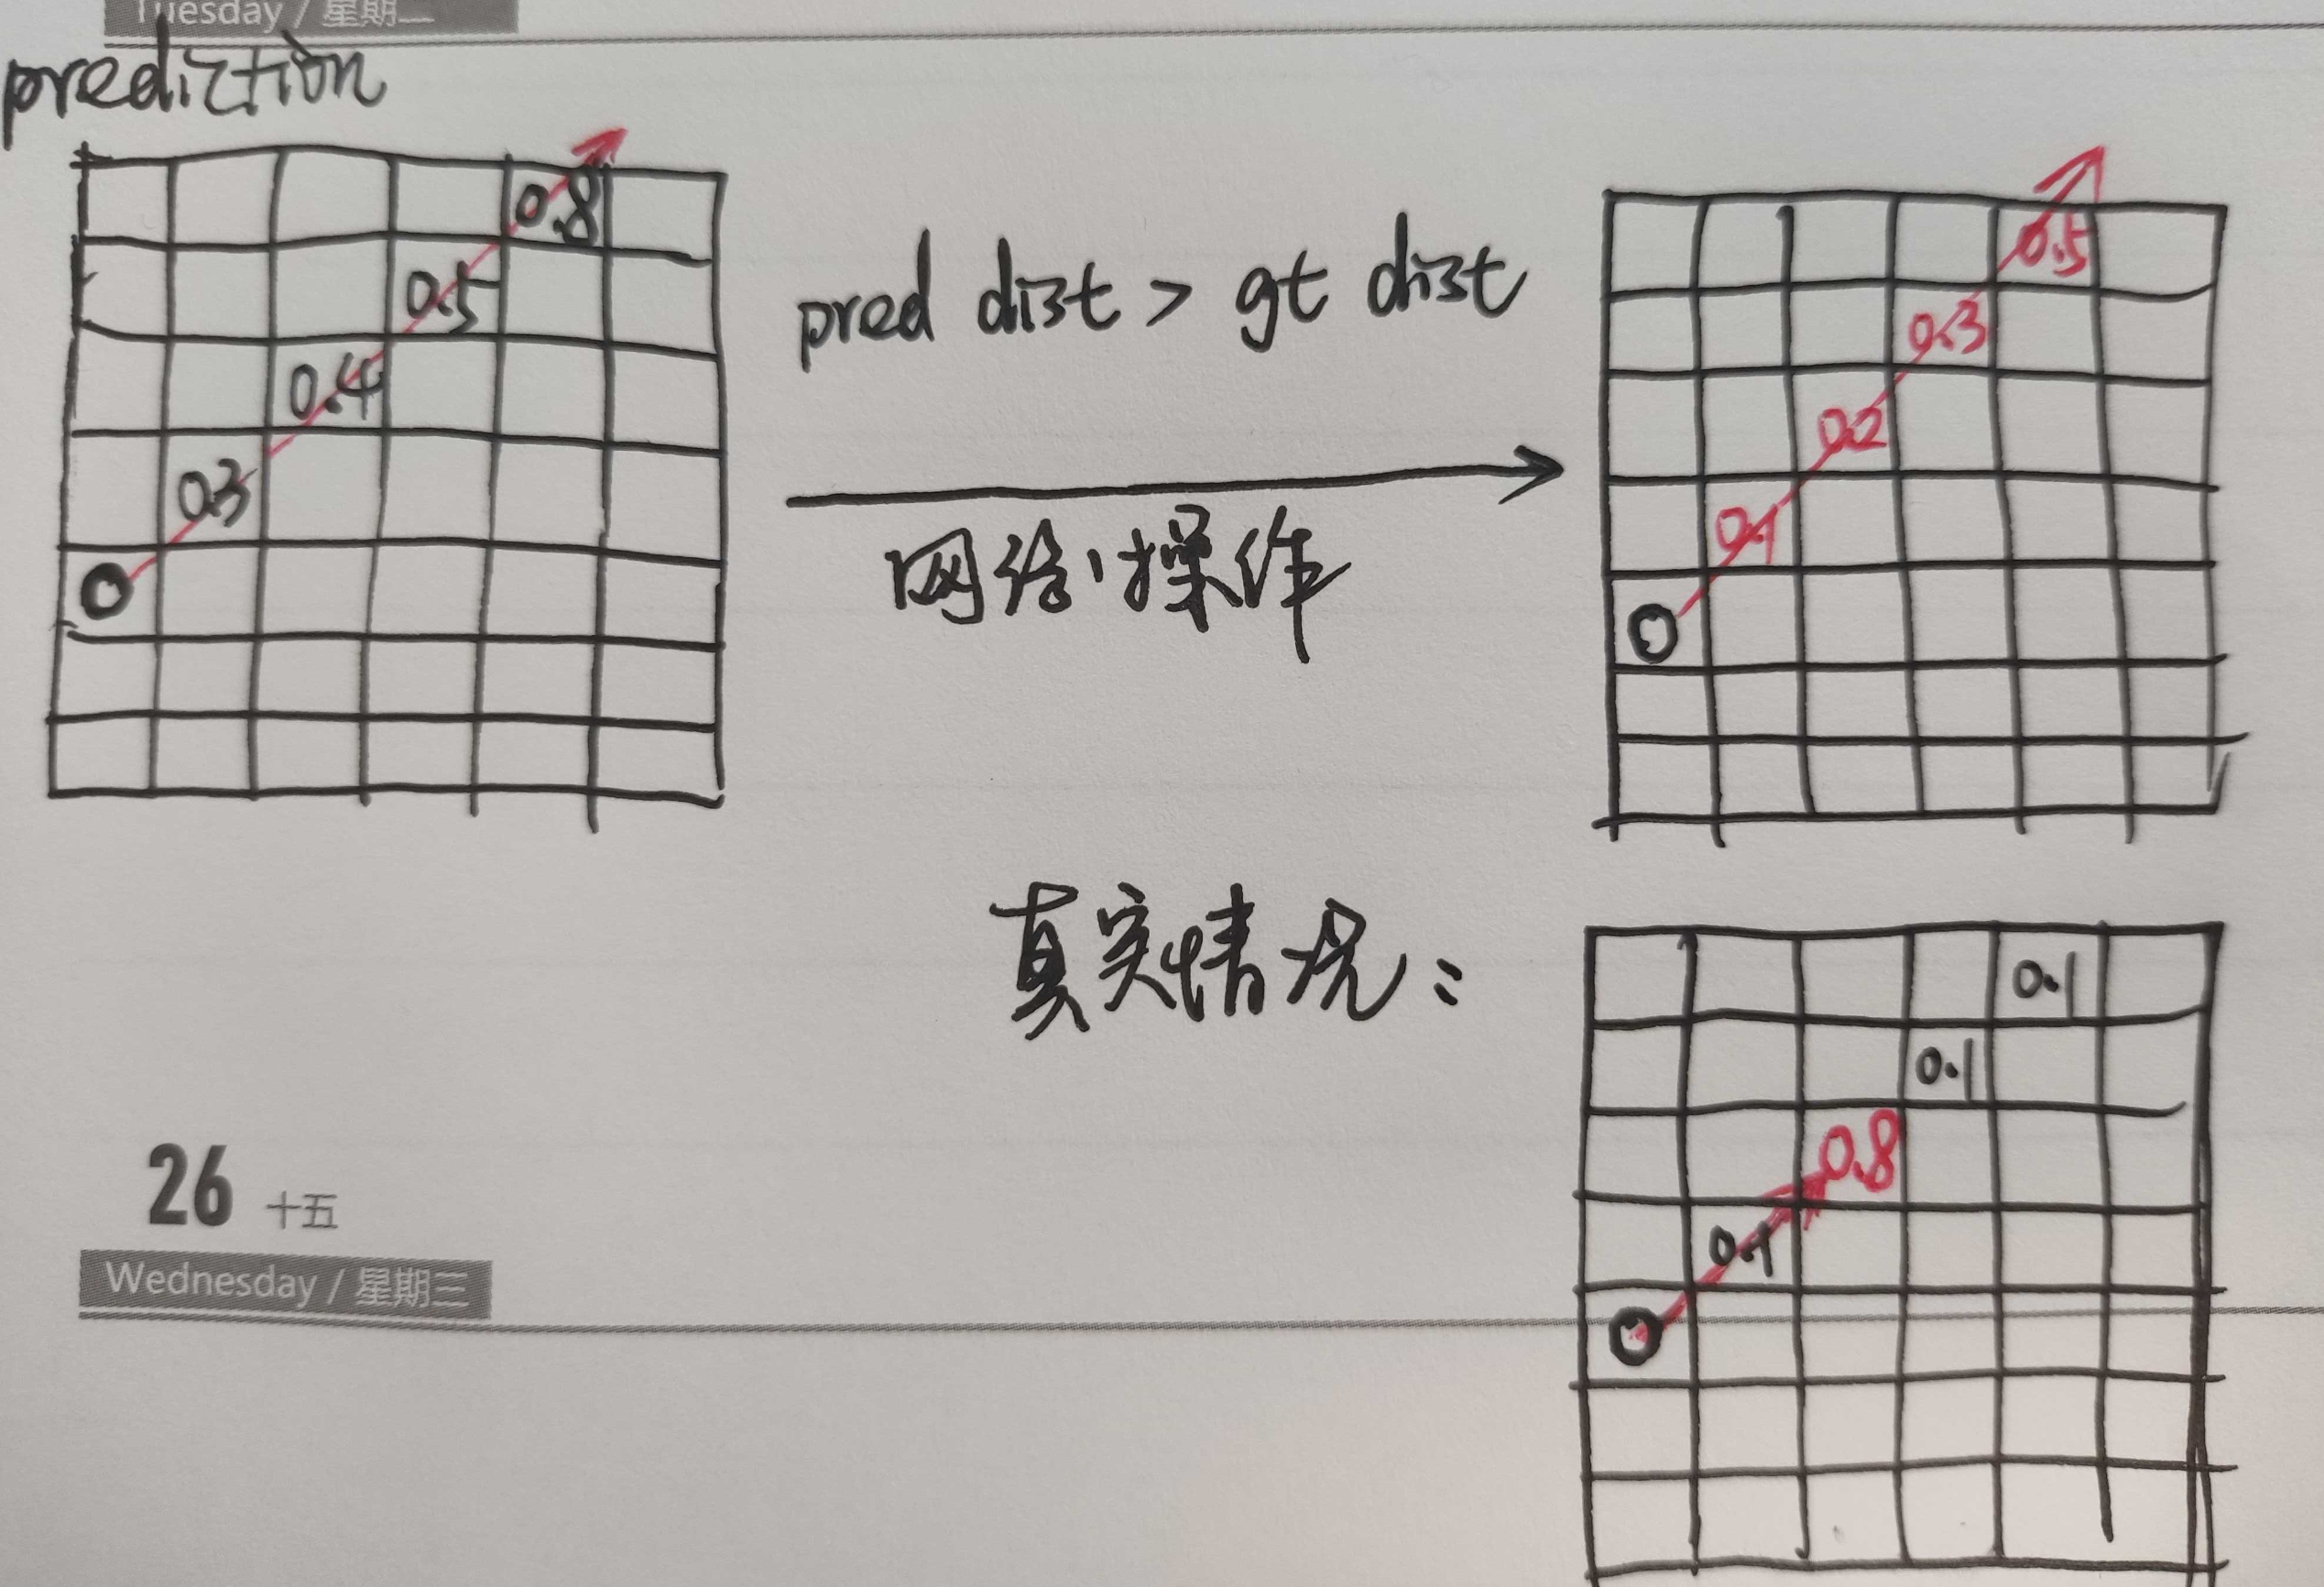 Tuesday / 星期二
prediction
0.8
0.5
0.4
0.3
pred dist > gt dist
网络操作
0.5
0.3
0.2
0.1
真实情况：
0.1
0.1
0.8
0.1
26 十五
Wednesday / 星期三